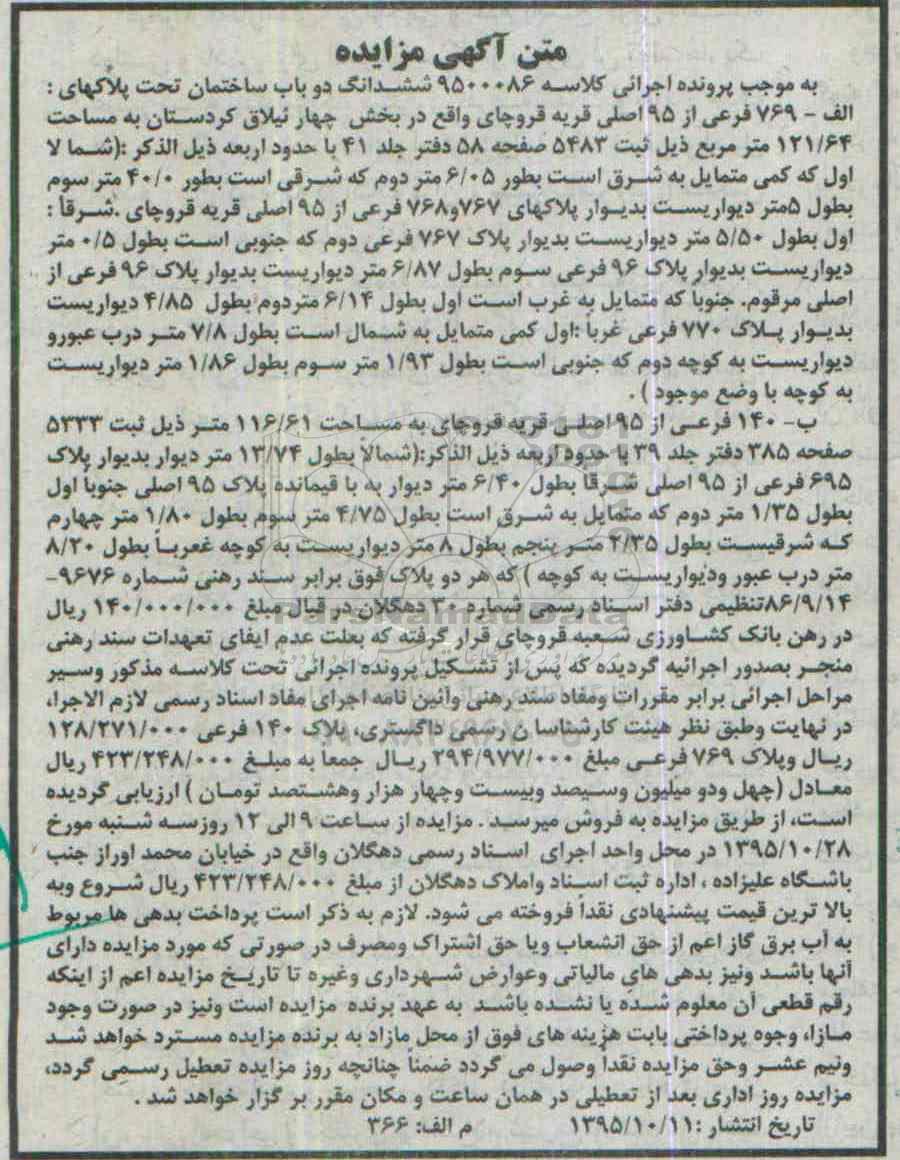 متن آگهی مزایده
به موجب پرونده اجرائی کلاسه ۹۵۰۰۰۸۶ ششدانگ دو باب ساختمان تحت پلاکهای :
الف - ۷۶۹ فرعی از ۹۵ اصلی قریه قروچای واقع در بخش چهار ئیلاق کردستان به مساحت
۱۲۱/۶۴ متر مربع ذیل ثبت ۵۴۸۳ صفحه ۵۸ دفتر جلد ۴۱ با حدود اربعه ذیل الذکر :(شما لا
اول که کمی متمایل به شرق است بطور ۶/۰۵ متر دوم که شرقی است بطور ۴۰/۰ متر سوم
بطول ۵متر دیواریست بدیوار پلاکهای ۷۶۷و۷۶۸ فرعی از ۹۵ اصلی قریه قروچای .شرقاً :
اول بطول ۵/۵۰ متر دیواریست بدیوار پلاک ۷۶۷ فرعی دوم که جنوبی است بطول ۰/۵ متر
دیواریست بدیوار پلاک ۹۶ فرعی سوم بطول ۶/۸۷ متر دیواریست بدیوار پلاک ۹۶ فرعی از
اصلی مرقوم. جنوباً که متمایل به غرب است اول بطول ۶/۱۴ متردوم بطول ۴/۸۵ دیواریست
بدیوار پلاک ۷۷۰ فرعی غرباً :اول کمی متمایل به شمال است بطول ۷/۸ متر درب عبورو
دیواریست به کوچه دوم که جنوبی است بطول ۱/۹۳ متر سوم بطول ۱/۸۶ متر دیواریست
به کوچه با وضع موجود ) .
ب- ۱۴۰ فرعی از ۹۵ اصلی قریه قروچای به مساحت ۱۱۶/۶۱ متر ذیل ثبت ۵۳۳۳
صفحه ۳۸۵ دفتر جلد ۳۹ با حدود اربعه ذیل الذکر:(شمالاً بطول ۱۳/۷۴ متر دیوار بدیوار پلاک
۶۹۵ فرعی از ۹۵ اصلی شرقاً بطول ۶/۴۰ متر دیوار به با قیمانده پلاک ۹۵ اصلی جنوباً اول
بطول ۱/۳۵ متر دوم که متمایل به شرق است بطول ۴/۷۵ متر سوم بطول ۱/۸۰ متر چهارم
که شرقیست بطول ۲/۳۵ متر پنجم بطول ۸ متر دیواریست به کوچه غعرباً بطول ۸/۲۰
متر درب عبور ودیواریست به کوچه ) که هر دو پلاک فوق برابر سند رهنی شماره ۹۶۷۶-
۸۶/۹/۱۴تنظیمی دفتر اسناد رسمی شماره ۳۰ دهگلان در قبال مبلغ ۱۴۰/۰۰۰/۰۰۰ ریال
در رهن بانک کشاورزی شعبه قروچای قرار گرفته که بعلت عدم ایفای تعهدات سند رهنی
منجر بصدور اجرائیه گردیده که پس از تشکیل پرونده اجرائی تحت کلاسه مذکور وسیر
مراحل اجرائی برابر مقررات ومفاد سند رهنی وآئین نامه اجرای مفاد اسناد رسمی لازم الاجرا،
در نهایت وطبق نظر هیئت کارشناسا ن رسمی داگستری، پلاک ۱۴۰ فرعی ۱۲۸/۲۷۱/۰۰۰
ریال وپلاک ۷۶۹ فرعی مبلغ ۲۹۴/۹۷۷/۰۰۰ ریال جمعا به مبلغ ۴۲۳/۲۴۸/۰۰۰ ریال
معادل (چهل ودو میلیون وسیصد وبیست وچهار هزار وهشتصد تومان ) ارزیابی گردیده
است، از طریق مزایده به فروش میرسد . مزایده از ساعت ۹ الی ۱۲ روزسه شنبه مورخ
۱۳۹۵/۱۰/۲۸ در محل واحد اجرای اسناد رسمی دهگلان واقع در خیابان محمد اوراز جنب
باشگاه علیزاده ، اداره ثبت اسناد واملاک دهگلان از مبلغ ۴۲۳/۲۴۸/۰۰۰ ریال شروع وبه
بالا ترین قیمت پیشنهادی نقداً فروخته می شود. لازم به ذکر است پرداخت بدهی ها مربوط
به آب برق گاز اعم از حق انشعاب ویا حق اشتراک ومصرف در صورتی که مورد مزایده دارای
آنها باشد ونیز بدهی های مالیاتی وعوارض شهرداری وغیره تا تاریخ مزایده اعم از اینکه
رقم قطعی آن معلوم شده یا نشده باشد به عهد برنده مزایده است ونیز در صورت وجود
مازا، وجوه پرداختی بابت هزینه های فوق از محل مازاد به برنده مزایده مسترد خواهد شد
ونیم عشر وحق مزایده نقداً وصول می گردد ضمناً چنانچه روز مزایده تعطیل رسمی گردد،
مزایده روز اداری بعد از تعطیلی در همان ساعت و مکان مقرر بر گزار خواهد شد .
تاریخ انتشار :۱۳۹۵/۱۰/۱۱ م الف: ۳۶۶
ParsNamadData